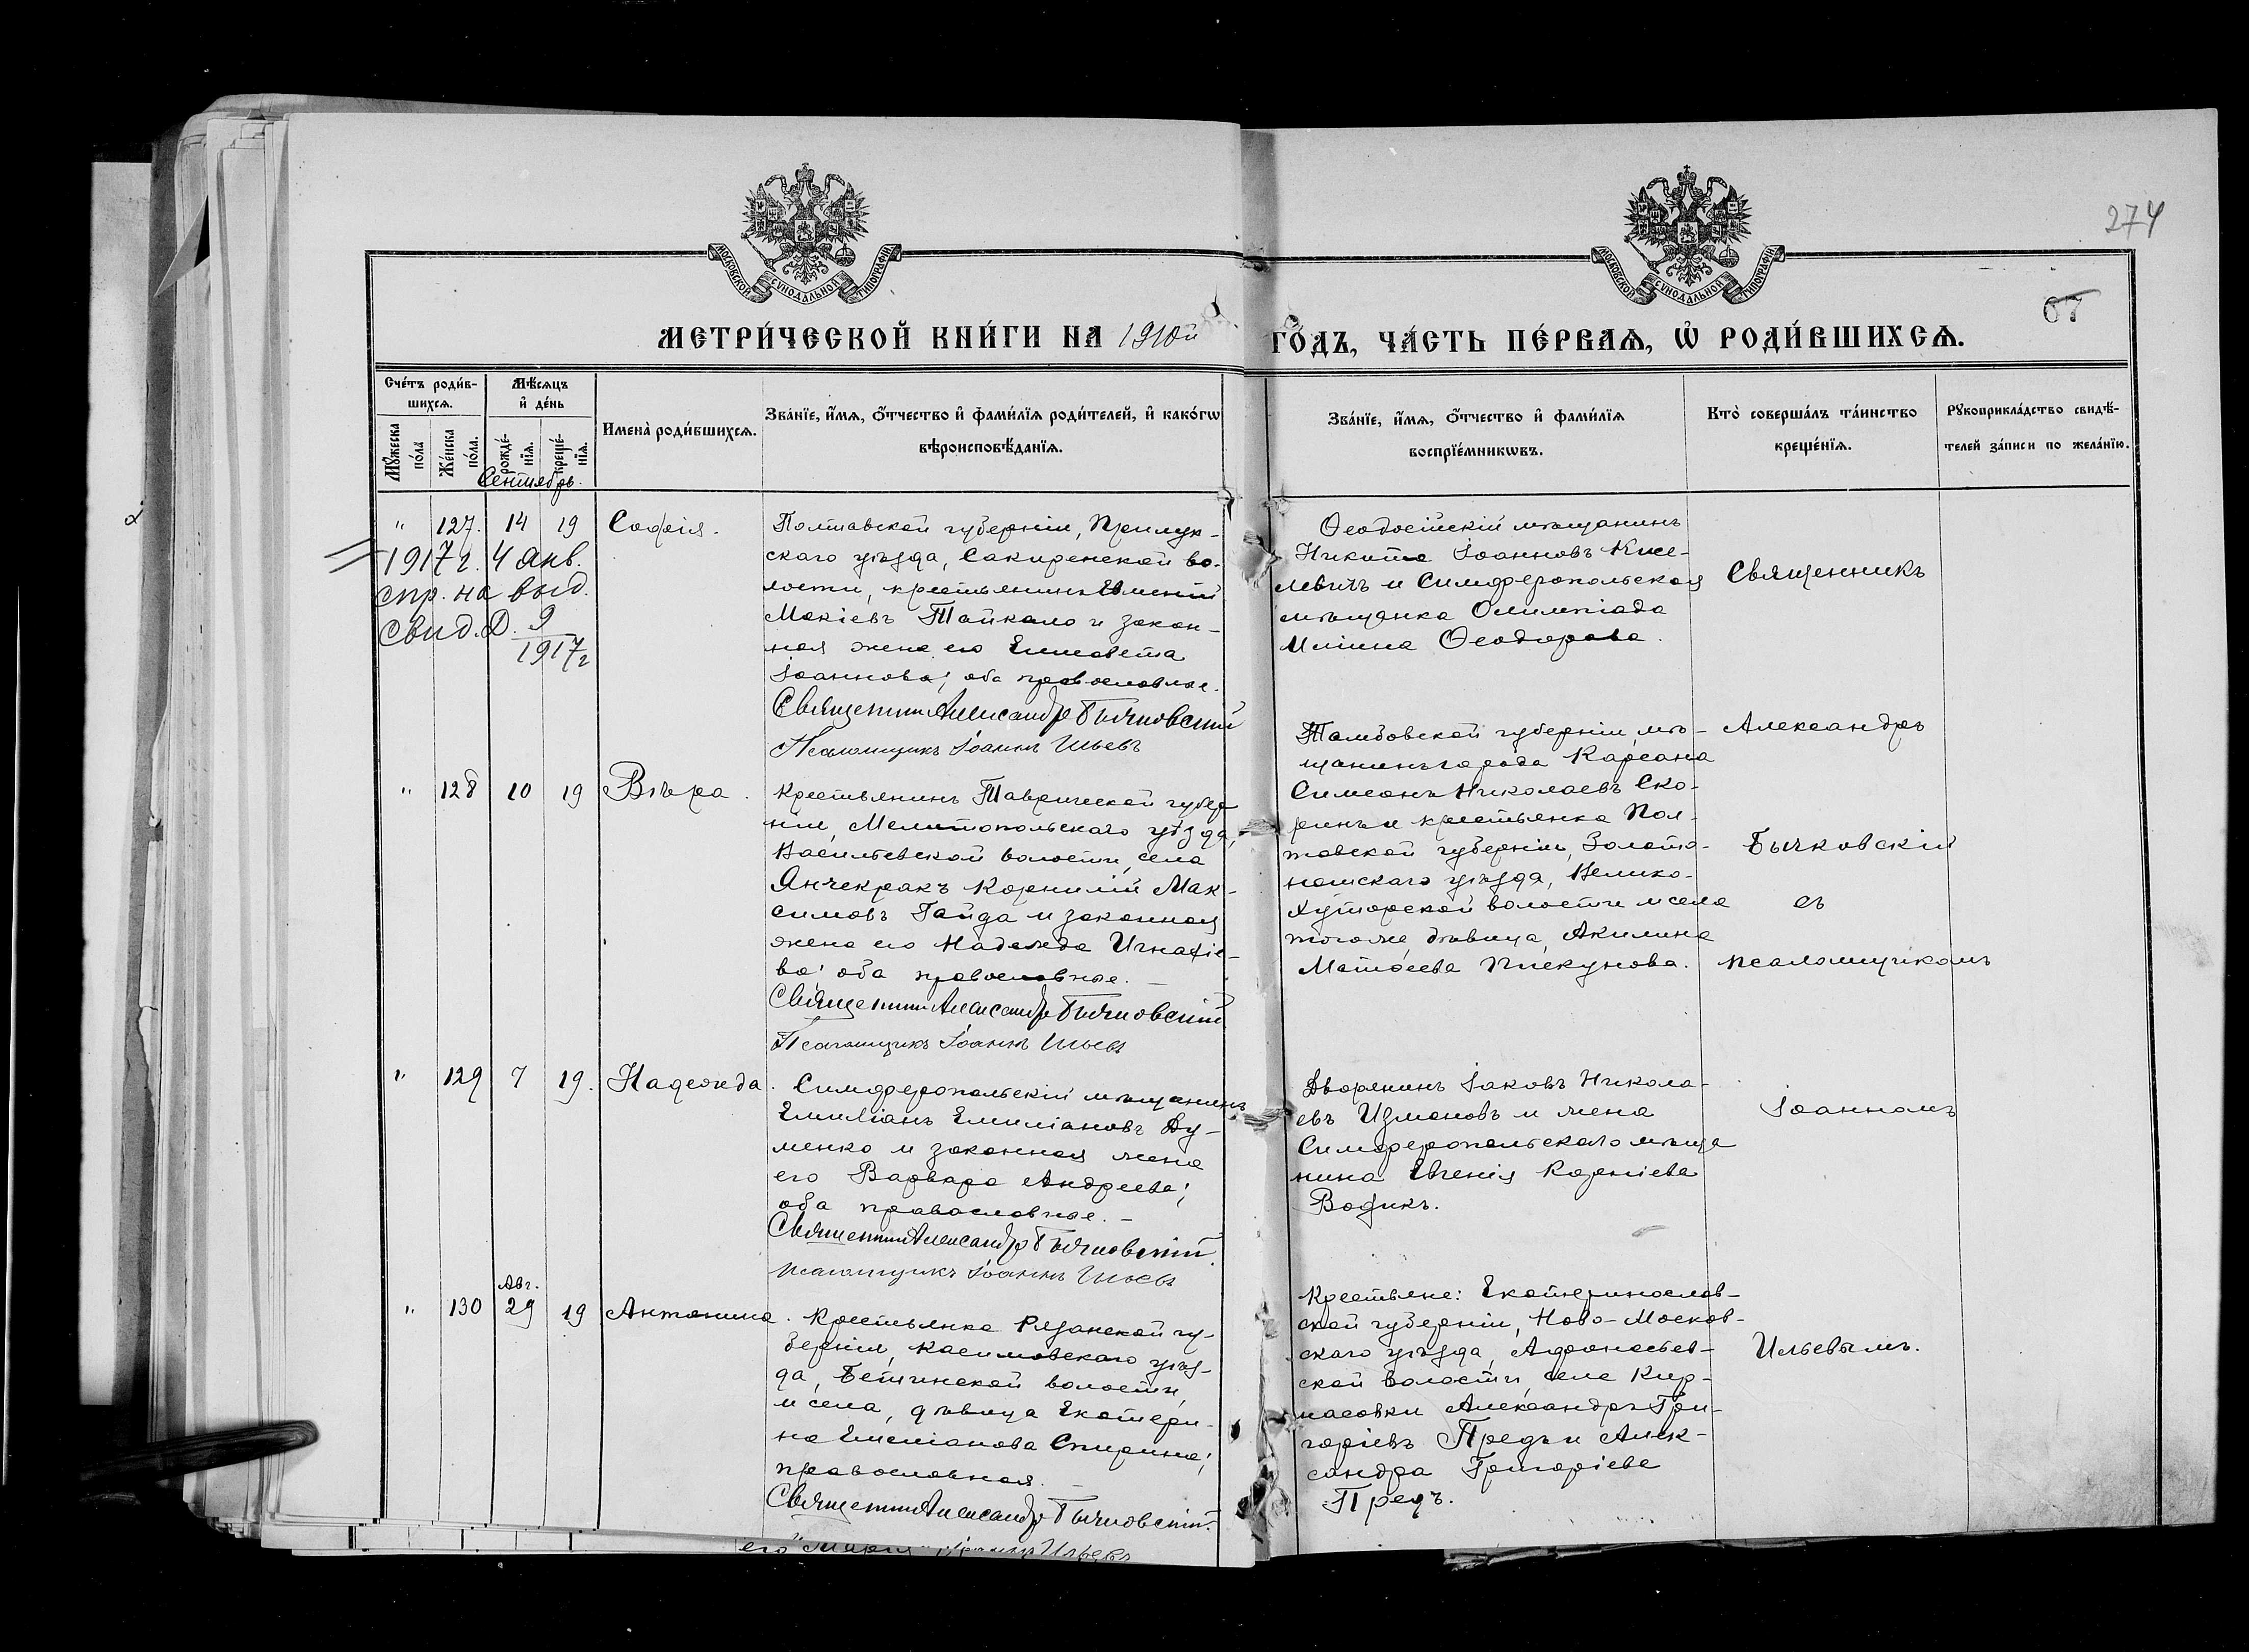 274
67
МОСКОВСКОЙ СУНОДАЛЬНОЙ ТИПОГРАФІИ
МОСКОВСКОЙ СУНОДАЛЬНОЙ ТИПОГРАФІИ
МЕТРИ́ЧЕСКОЙ КНИ́ГИ НА 1910й ГО́ДЪ, ЧА́СТЬ ПЕ́РВАѦ, Ѡ РОДИ́ВШИХСѦ.
Сче́тъ роди́в-
шихсѧ.
Мѣ́сѧцъ
и де́нь
Мꙋ́жеска по́ла
Же́нска по́ла.
рожде́-нїѧ.
креще́-нїѧ.
Имена̀ роди́вшихсѧ.
Зва́нїе, и́мѧ, ѻ́тчество и фами́лїѧ роди́телей, и како́гѡ
вѣроисповѣ́данїѧ.
Зва́нїе, и́мѧ, ѻ́тчество и фами́лїѧ
воспрїе́мникѡвъ.
Кто̀ соверша́лъ та́инство
креще́нїѧ.
Рꙋкоприкла́дство свидѣ́-
телей за́писи по жела́нїю.
Сентябрь.
" 127. 14 19 Софія.
1917 г. 4 янв.
спр. на выд.
Свид. Д. 9
1917 г
Полтавской губерніи, Прилук-
скаго уѣзда, Сакиренской во-
лости, крестьянинъ
Мокіевъ Тайкало и закон-
ная жена его Елисавета
Іоаннова; оба православные.
Священникъ Александръ Бычковскій
Псаломщикъ Іоаннъ Ильевъ
Ѳеодосійскій мѣщанинъ
Никита Іоанновъ Кисе-
левичъ и Симферопольская
мѣщанка Олимпіада
Иліина Ѳеодорова.
Священникъ
" 128 10 19 Вѣра.
Крестьянинъ Таврической губер
ніи, Мелитопольскаго уѣзда,
Васильевской волости, села
Янчекракъ Корнилій Мак-
симовъ Гайда и законная
жена его Надежда Игнатіе-
ва; оба православные.
Священникъ Александръ Бычковскій
Псаломщикъ Іоаннъ Ильевъ
Тамбовской губерніи, мѣ-
щанинъ города Карсана
Симеонъ Николаевъ Ско-
ринъ и крестьянка Пол-
тавской губерніи, Золото-
ношскаго уѣзда, Велико-
Хуторской волости и села
того же, дѣвица, Акилина
Матѳеева Пискунова.
Александръ
Бычковскій
съ
псаломщикомъ
" 129 7 19. Надежда.
Симферопольскій мѣщанинъ
Емиліанъ Емиліановъ Ду-
менко и законная жена
его Варвара Андреева;
оба православные. –
Священникъ Александръ Бычковскій.
Псаломщикъ Іоаннъ Ильевъ
Дворянинъ Іаковъ Никола-
евъ Измановъ и жена
Симферопольскаго мѣща
нина Евгенія Корніева
Водикъ.
Іоанномъ
Авг.
" 130 29 19 Антонина.
Крестьянка Рязанской гу-
берніи, Касимовскаго уѣз-
да, Бетинской волости,
и села, дѣвица Екатери-
на Емиліанова Спирина;
православная.
Священникъ Александръ Бычковскій.
Крестьяне: Екатеринослав-
ской губерніи, Ново-Москов-
скаго уѣзда, Афонасьев-
ской волости, села Кир-
насовки Александръ Гри-
горіевъ Предъ и Алек-
сандра Григоріева
Предъ.
Ильевымъ.
Ильевъ